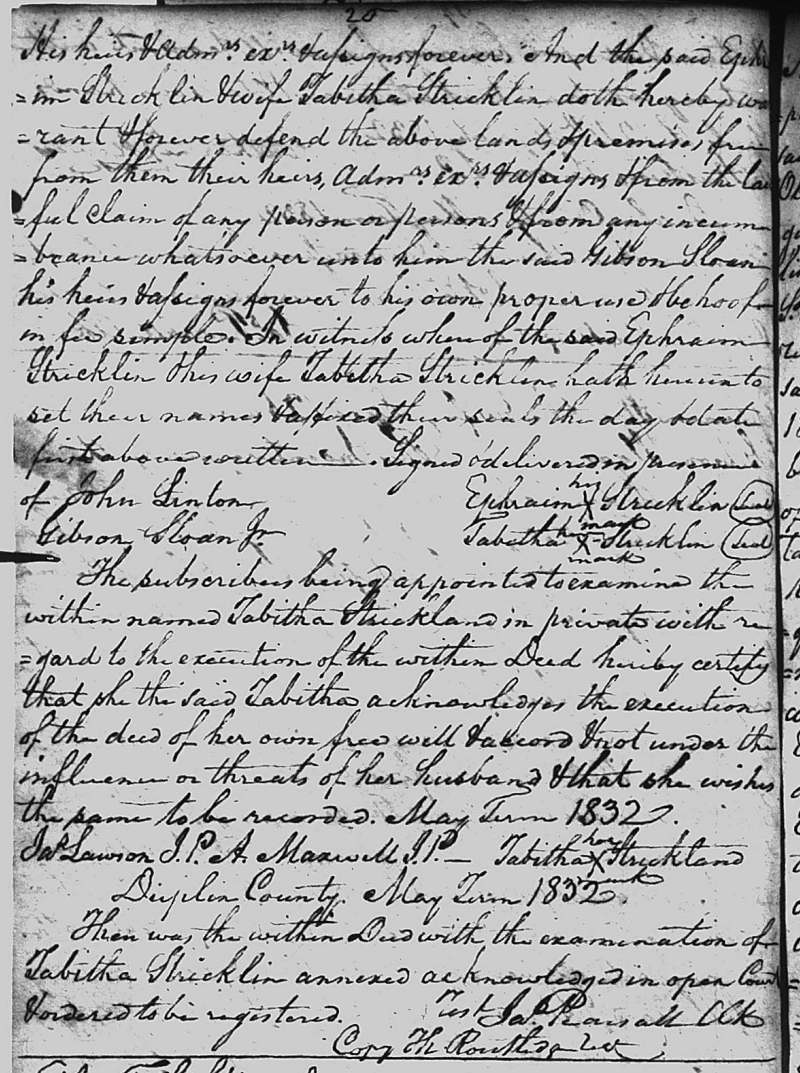 20
His heirs & Admrs. exrs. & assigns forever. And the said Ephr
=im Stricklin & wife Tabitha Stricklin doth hereby wa
=rant & forever defend the above lands & premises free
from them their heirs, Admrs. exrs. & assigns & from the law
=ful claim of any person or persons & from any incum
=brance whatsoever unto him the said Gibson Sloan
his heirs & assigns forever to his own proper use & behoof
in fee simple. In witness whereof the said Ephraim
Stricklin & his wife Tabitha Stricklin hath hereunto
set their names & affixed their seals the day & date
first above written. Signed & delivered in presence
of John Linton Ephraim his X mark Stricklin (Seal)
Gibson Sloan Jr Tabitha her X mark Stricklin (Seal)
The subscribers being appointed to examine the
within named Tabitha Strickland in private with re
=gard to the execution of the within Deed hereby certify
that she the said Tabitha acknowledges the execution
of the deed of her own free will & accord & not under the
influence or threats of her husband & that she wishes
the same to be recorded. May Term 1832.
Jas. Lawson J.P. A. Maxwell J.P. Tabitha her X mark Strickland
Duplin County. May Term 1832.
Then was the within Deed with the examination of
Tabitha Stricklin annexed acknowledged in open Court
& ordered to be registered. Test Jas. Pearsall Clk
Copy Th Routledge